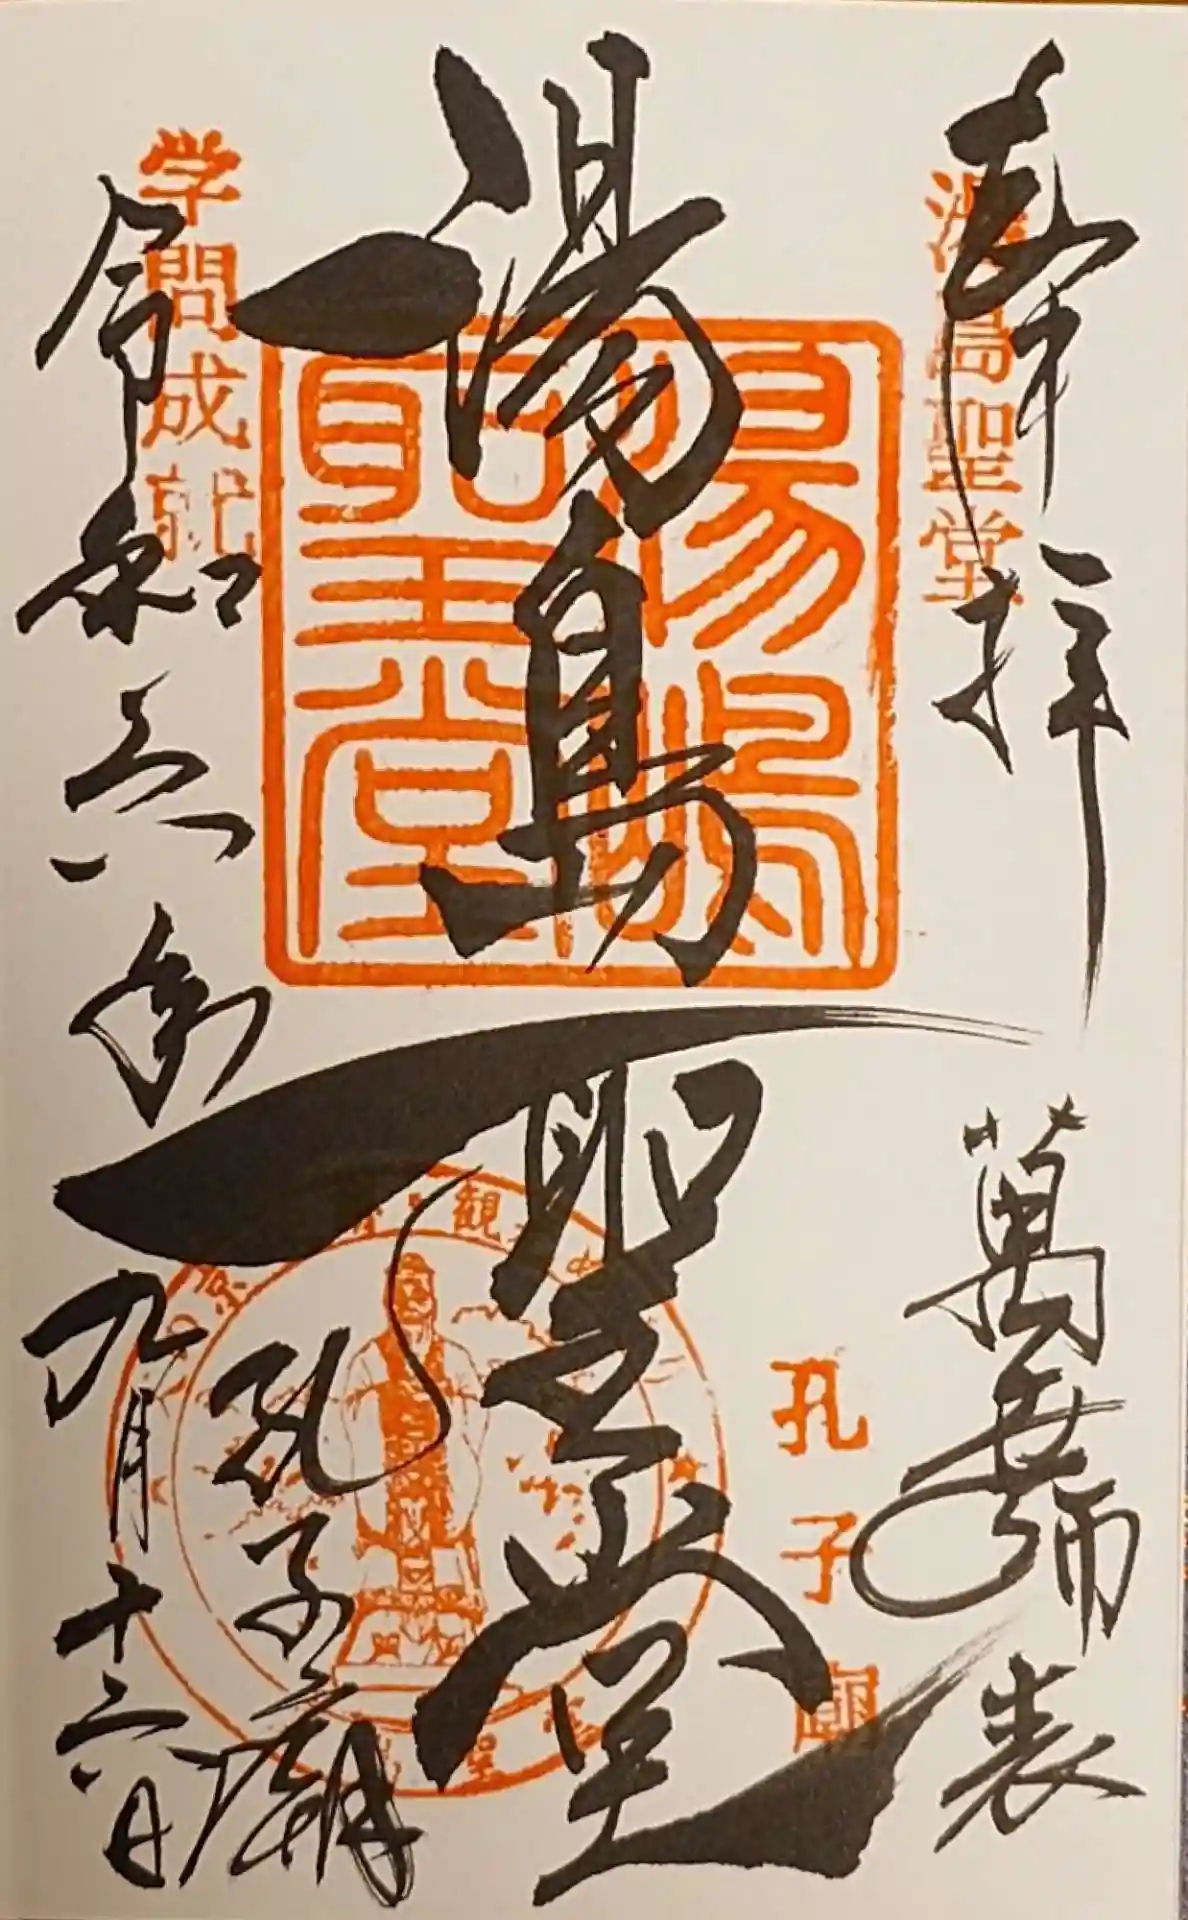 奉拝
萬世師表
湯島聖堂
孔子廟
湯島聖堂
湯嶋
聖堂
孔子廟
学問成就
令和六年九月十六日